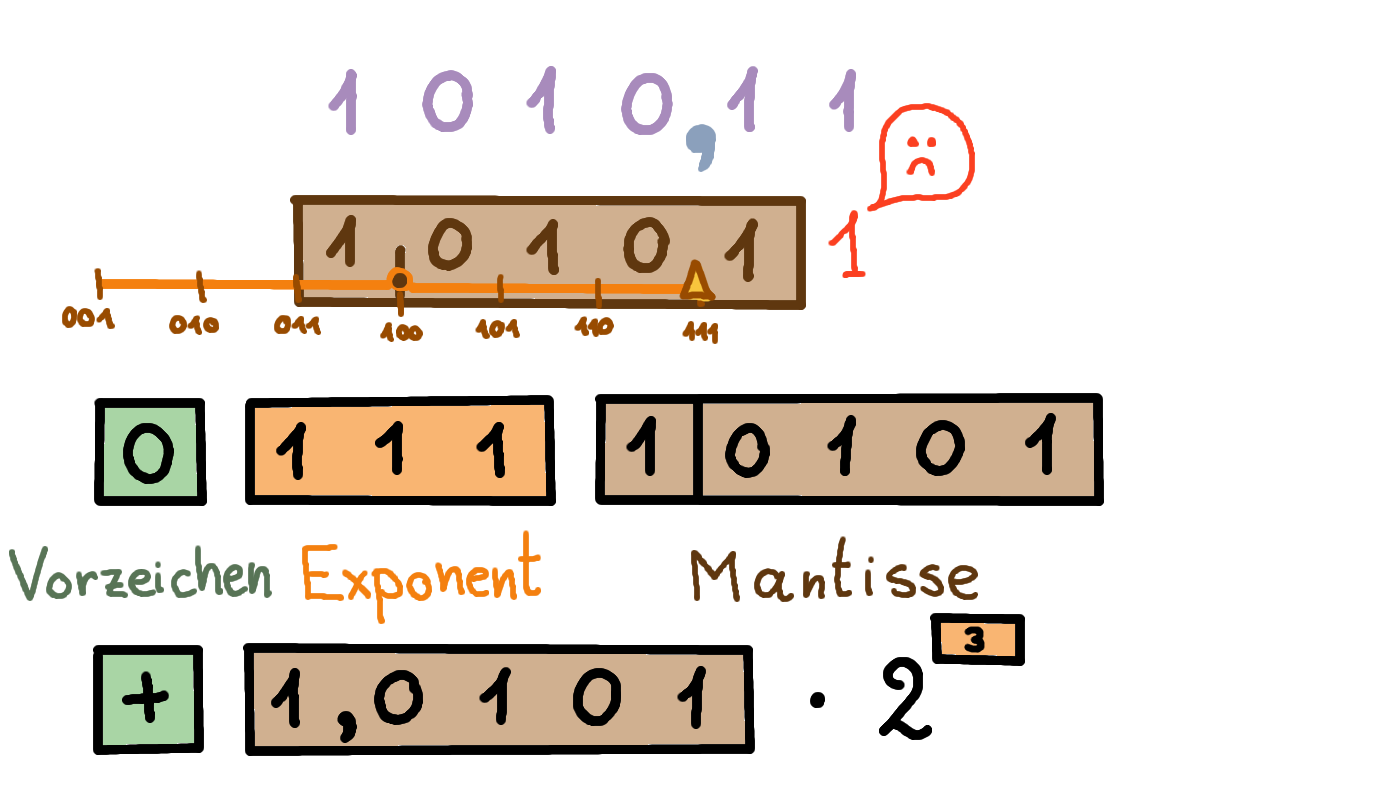 1 0 1 0 , 1 1
1 0 1 0 1 1
001 010 011 100 101 110 111
0 1 1 1 1 0 1 0 1
Vorzeichen Exponent Mantisse
+ 1 , 0 1 0 1 · 2 3